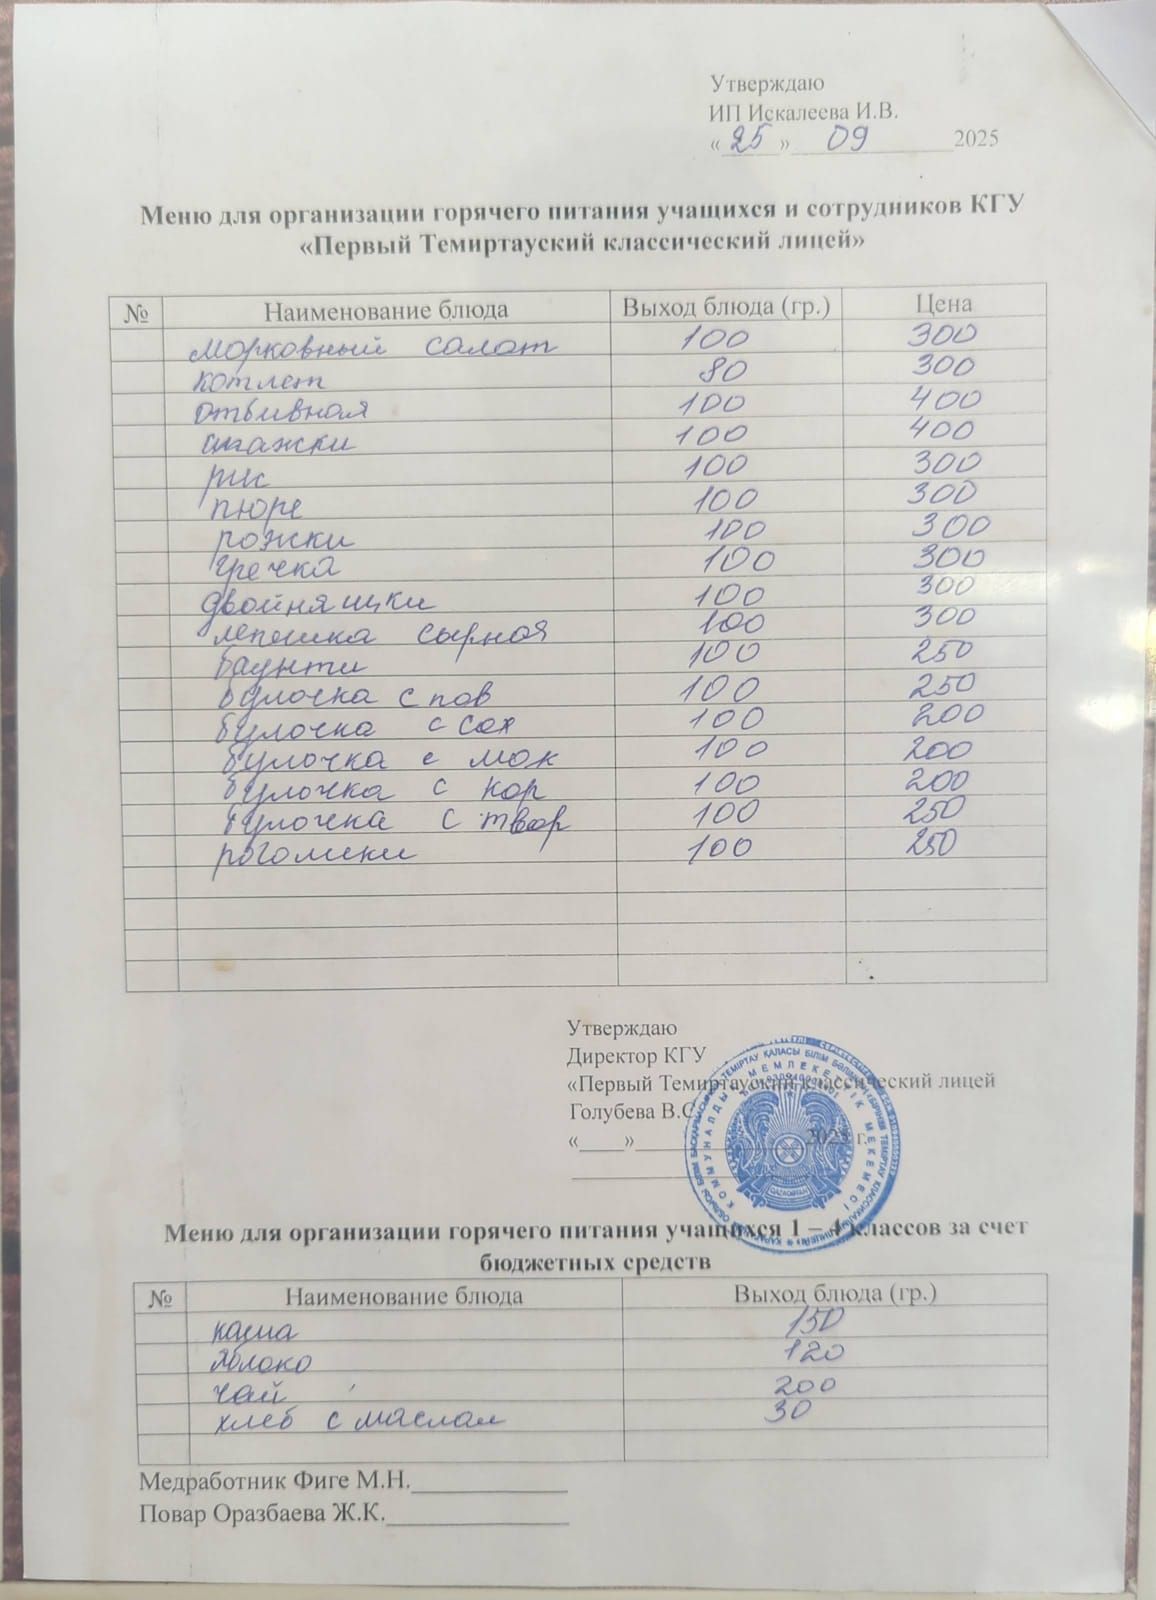 Утверждаю
ИП Искалеева И.В.
«25» 09 2025
Меню для организации горячего питания учащихся и сотрудников КГУ
«Первый Темиртауский классический лицей»
№ Наименование блюда Выход блюда (гр.) Цена
морковный салат 100 300
котлет 80 300
отбивная 100 400
100 400
рис 100 300
пюре 100 300
рожки 100 300
гречка 100 300
двойняшки 100 300
лепешка сырная 100 300
баунти 100 250
булочка с пов 100 250
булочка с сах 100 200
булочка с мак 100 200
булочка с кор 100 200
булочка с твор 100 250
рогалики 100 250
Утверждаю
Директор КГУ
«Первый Темиртауский классический лицей
Голубева В.С
«____»______________ 2025 г.
КОММУНАЛДЫҚ МЕМЛЕКЕТТІК МЕКЕМЕСІ
QAZAQSTAN
Меню для организации горячего питания учащихся 1 – 4 классов за счет
бюджетных средств
№ Наименование блюда Выход блюда (гр.)
каша 150
яблоко 120
чай 200
хлеб с маслом 30
Медработник Фиге М.Н.____________
Повар Оразбаева Ж.К.______________